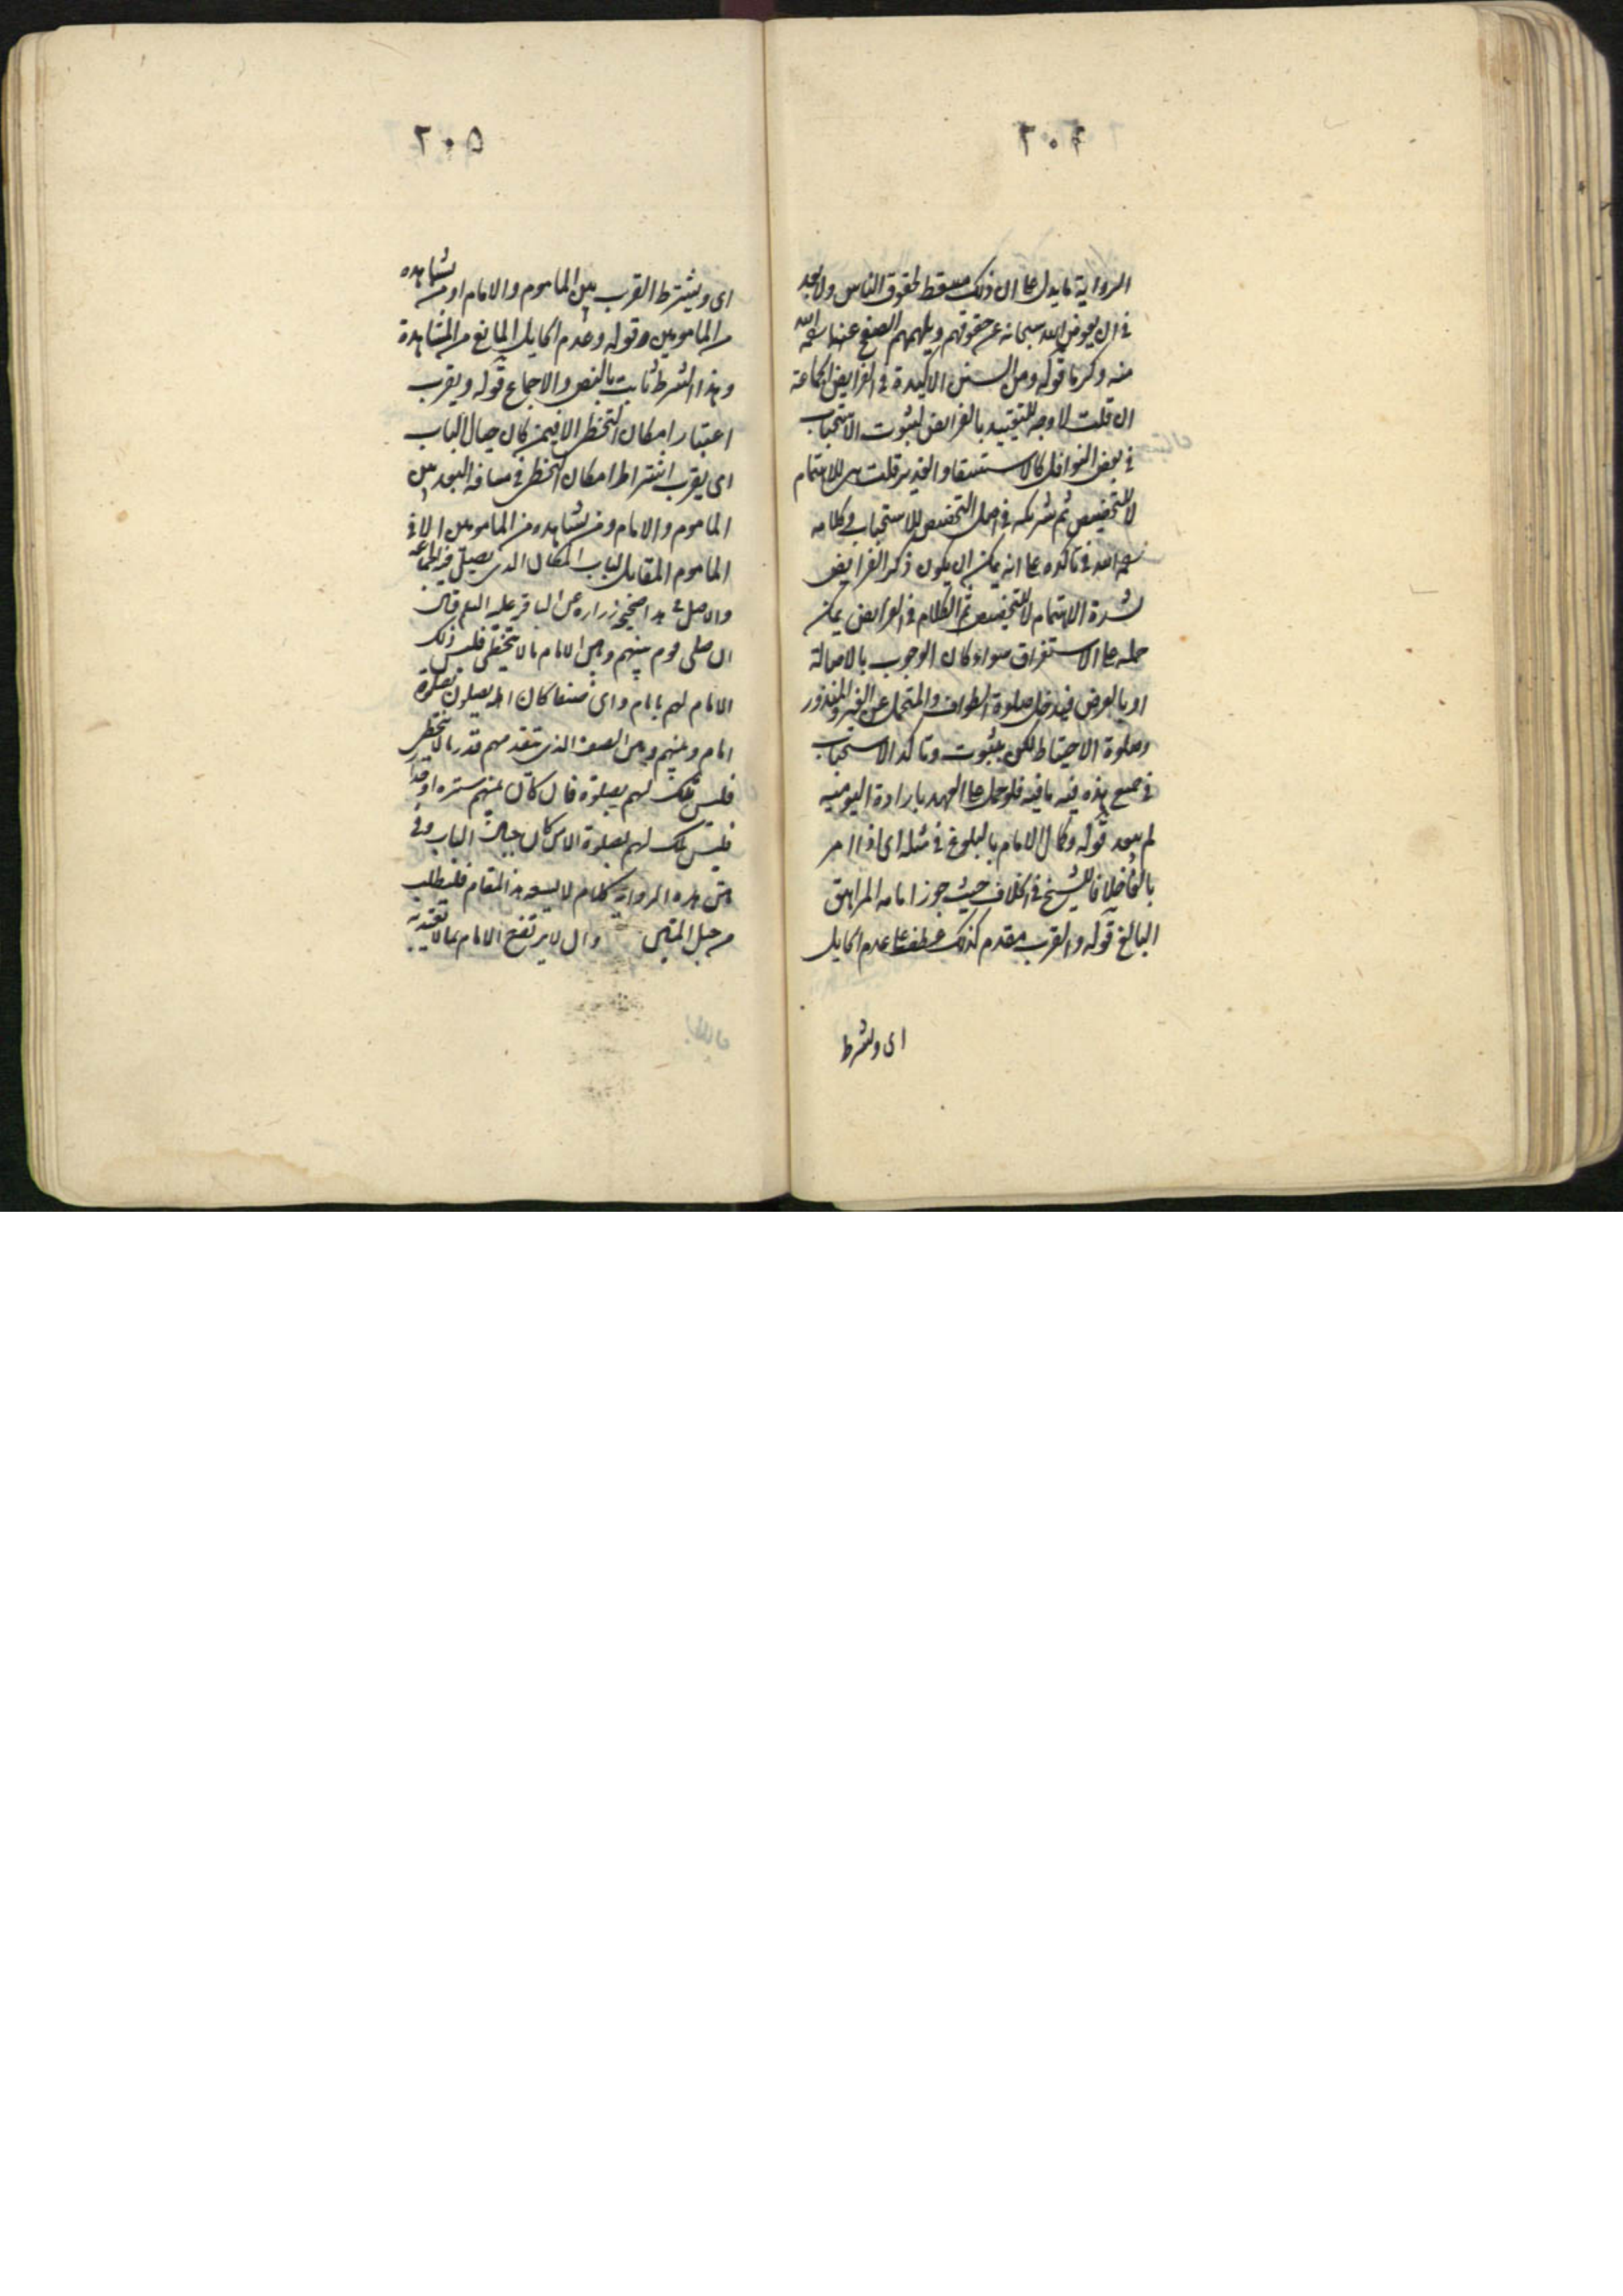 ٢٠٤
الرواية ما يدل على ان ذلك مسقط لحقوق الناس ولا بعد
في ان يعوض الله سبحانه عن حقوقهم ويلهمهم الصفح عنها
منه وكرما قوله ومن السنن الاكيدة في الفرايض الجماعة
ان قلت لا وجه للتقييد بالفرايض لثبوت الاستحباب
في بعض النوافل كالاستسقا والغدير قلت هي للاهتمام
لا للتخصيص ثم شريكه في اصل التخصيص للاستحباب وكلامه
في تاكده على انه يمكن ان يكون ذكر الفرايض
لشدة الاهتمام لا للتخصيص ثم الكلام في الفرايض يمكن
حمله على الاستغراق سواء كان الوجوب بالاصالة
او بالعرض فيدخل صلوة الطواف والمتحمل عن الغير والمنذور
وصلوة الاحتياط لكن ثبوت وتاكد الاستحباب
في جميع هذه فيه ما فيه فلو حمل على العهد بارادة اليومية
لم يبعد قوله وكمال الامام بالبلوغ في مثله اى اذا امر
بالغا خلافا للشيخ في الخلاف حيث جوز امامه المراهق
البالغ قوله والقرب مقدم كذلك عطف على عدم الحايل
اى ويشترط
٢٠٥
اى ويشترط القرب بين الماموم والامام او من يشاهده
من المامومين وقوله وعدم الحايل المانع من المشاهدة
وهذا الشرط ثابت بالنص والاجماع قوله ويقرب
اعتبار امكان التخطى الا فيمن كان حيال الباب
اى يقرب اشتراط امكان التخطى في مسافه البعد بين
الماموم والامام ومن يشاهده من المامومين الا في
الماموم المقابل لباب المكان الذى يصلى فيه الجماعه
والاصل في هذا صحيحه زراره عن الباقر عليه السلم قال
ان صلى قوم بينهم وبين الامام ما لا يتخطى فليس ذلك
الامام لهم بامام واى صف كان اهله يصلون بصلوة
امام وبينهم وبين الصف الذى تتقدمهم قدر ما لا يتخطى
فليس تلك لهم بصلوة فان كان بينهم ستره او جدار
فليس تلك لهم بصلوة الا من كان حيال الباب وفى
متن هذه الرواية كلام لا يسعه هذ المقام فليطلب
من حبل المتين وان لا يرتفع الامام بما لا